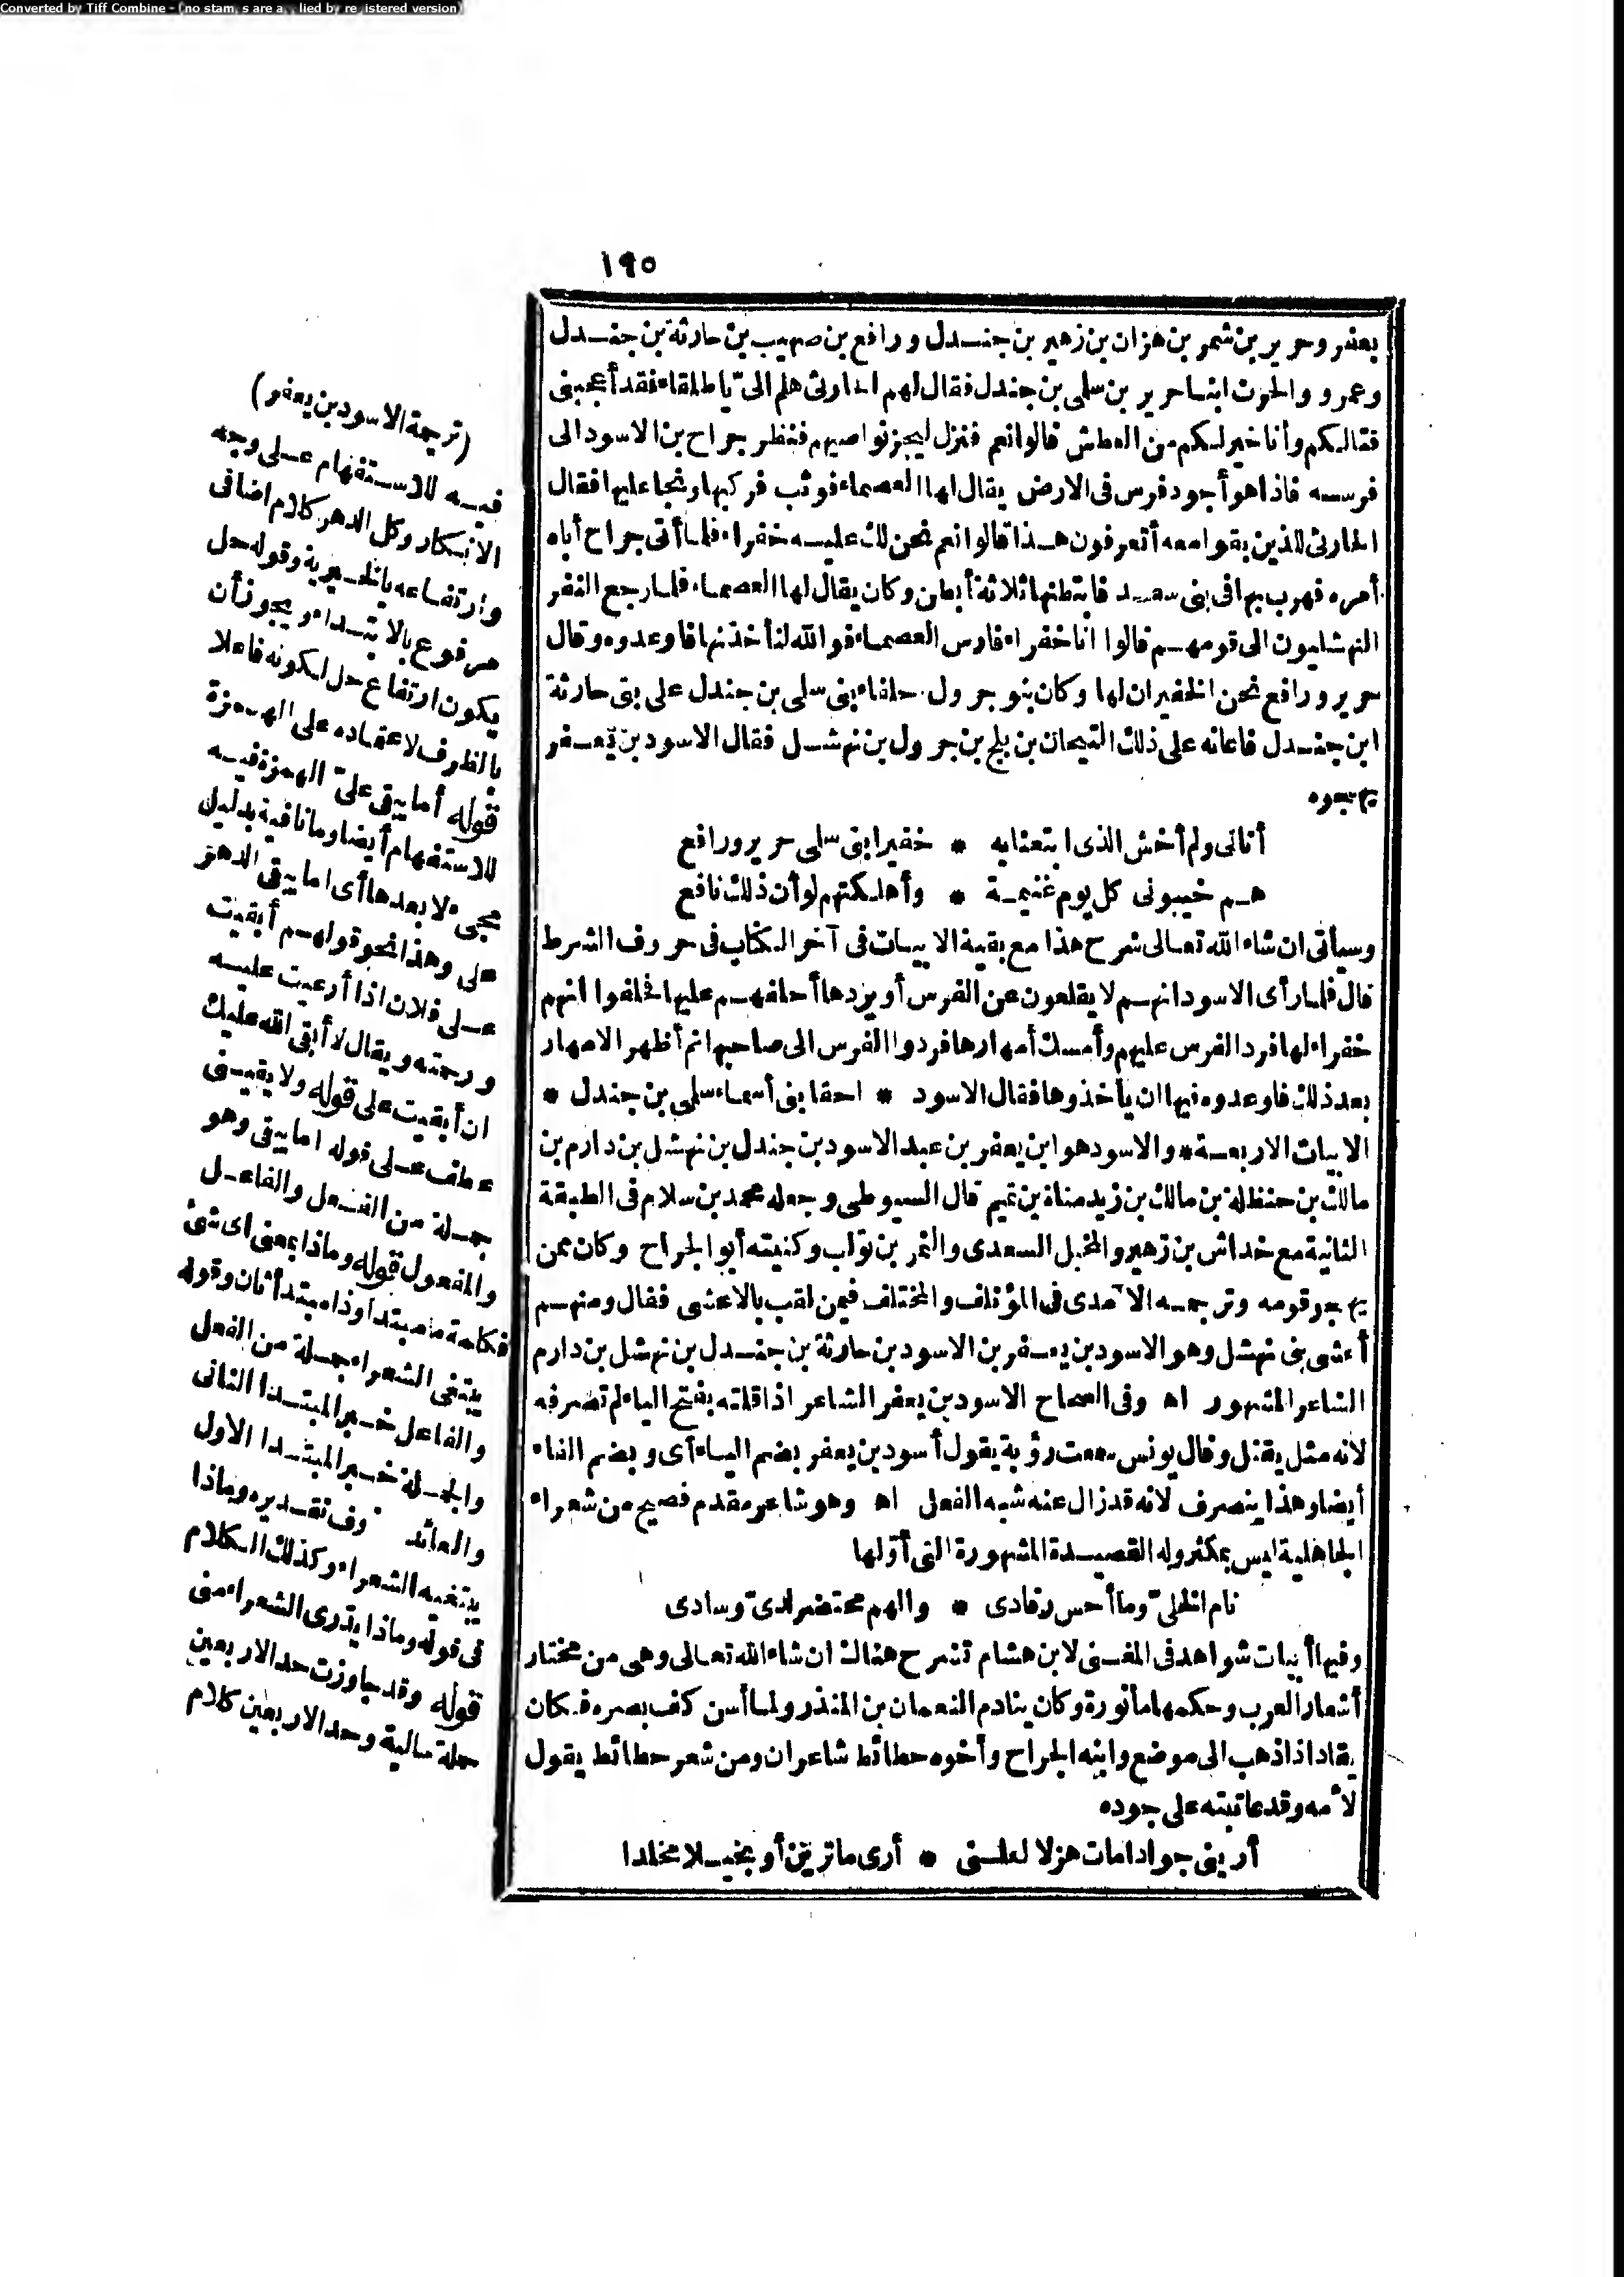 Converted by Tiff Combine - (no stamps are applied by registered version)
١٩٥
يعفر وحرير بن شمر بن هزان بن زهير بن جندل ورافع بن صهيب بن حارثة بن جندل
وعمرو والحرث ابنا حرير بن سلمى بن جندل فقال لهم الحارثى هلم الىّ يا طلقاء فقد أعجبنى
قتالكم وأنا خير لكم من العطش قالوا نعم فنزل ليجز نواصيهم فنظر جراح بن الاسود الى
فرسه فاذا هو أجود فرس فى الارض يقال لها العصماء فوثب فركبها ونجا عليها فقال
الحارثى للذين بقوا معه أتعرفون هذا قالوا نعم نحن لك عليه خفراء فلما أتى جراح أباه
أمره فهرب بها فى بنى سعد فابتطنها ثلاثة أبطن وكان يقال لها العصماء فلما رجع النفر
النهشليون الى قومهم قالوا انا خفراء فارس العصماء فوالله لنأخذنها فأوعدوه وقال
حرير ورافع نحن الخفيران لها وكان بنو جرول حلفاء بنى سلمى بن جندل على بنى حارثة
ابن جندل فاعانه على ذلك التيحان بن بلج بن جرول بن نهشل فقال الاسود بن يعفر
يهجوه
أتانى ولم أخش الذى ابتعثا به * خفيرا بنى سلمى حرير ورافع
هم خيبونى كل يوم غنيمة * وأهلكتهم لو أن ذلك نافع
وسيأتى ان شاء الله تعالى شرح هذا مع بقية الابيات فى آخر الكتاب فى حروف الشرط
قال فلما رأى الاسود انهم لا يقلعون عن الفرس أو يردها أحلفهم عليها فحلفوا انهم
خفراء لها فرد الفرس عليهم وأمسك أمهارها فردوا الفرس الى صاحبها ثم أظهر الامهار
بعد ذلك فاوعدوه فيها ان يأخذوها فقال الاسود * احقا بنى أبناء سلمى بن جندل *
الابيات الاربعة * والاسود هو ابن يعفر بن عبد الاسود بن جندل بن نهشل بن دارم بن
مالك بن حنظلة بن مالك بن زيد مناة بن تميم قال السيوطى وجعله محمد بن سلام فى الطبقة
الثانية مع خداش بن زهير والمخبل السعدى والنمر بن تولب وكنيته أبو الجراح وكان ممن
يهجو قومه وترجمه الآمدى فى المؤتلف والمختلف فيمن لقب بالاعشى فقال ومنهم
أعشى بنى نهشل وهو الاسود بن يعفر بن الاسود بن حارثة بن جندل بن نهشل بن دارم
الشاعر المشهور اه وفى الصحاح الاسود بن يعفر الشاعر اذا قلته بفتح الياء لم تصرفه
لانه مثل يقتل وقال يونس سمعت رؤبة يقول أسود بن يعفر بضم الياء أى وبضم الفاء
أيضا وهذا ينصرف لانه قد زال عنه شبه الفعل اه وهو شاعر مقدم فصيح من شعراء
الجاهلية ليس بمكثر وله القصيدة المشهورة التى أوّلها
نام الخلىّ وما أحس رقادى * والهم محتضر لدىّ وسادى
وفيها أبيات شواهد فى المغنى لابن هشام تشرح هناك ان شاء الله تعالى وهى من مختار
أشعار العرب وحكمها مأثورة وكان ينادم النعمان بن المنذر ولما أسن كف بصره فكان
يقاد اذا ذهب الى موضع وابنه الجراح وأخوه حطائط شاعران ومن شعر حطائط يقول
لأمه وقد عاتبته على جوده
أرينى جوادا مات هزلا لعلنى * أرى ما ترين أو بخيلا مخلدا
(ترجمة الاسود بن يعفر)
فيه للاستفهام على وجه
الانكار وكل الدهر كلام اضافى
وارتفاعه بالخبرية وقوله حل
مرفوع بالابتداء ويجوز أن
يكون ارتفاع حل لكونه فاعلا
بالظرف لاعتماده على الهمزة
قوله أما يبقى علىّ الهمزة فيه
للاستفهام أيضا وما نافية بدليل
مجىء لا بعدها أى اما يبقى الدهر
على وهذا نحو قولهم أبقيت
على فلان اذا أرعيت عليه
ورحمته ويقال لا أبقى الله عليك
ان أبقيت على قوله ولا يقينى
عطف على قوله اما يبقى وهو
جملة من الفعل والفاعل
والمفعول قوله وماذا بمعنى اى شئ
فكلمة ما مبتدأ وذا مبتدأ ثان وقوله
يبتغى الشعراء جملة من الفعل
والفاعل خبر المبتدا الثانى
والجملة خبر المبتدا الاول
والعائد وف تقديره وماذا
يبتغيه الشعراء وكذلك الكلام
فى قوله وماذا يدرى الشعراء منى
قوله وقد جاوزت حد الاربعين
جملة حالية وحد الاربعين كلام